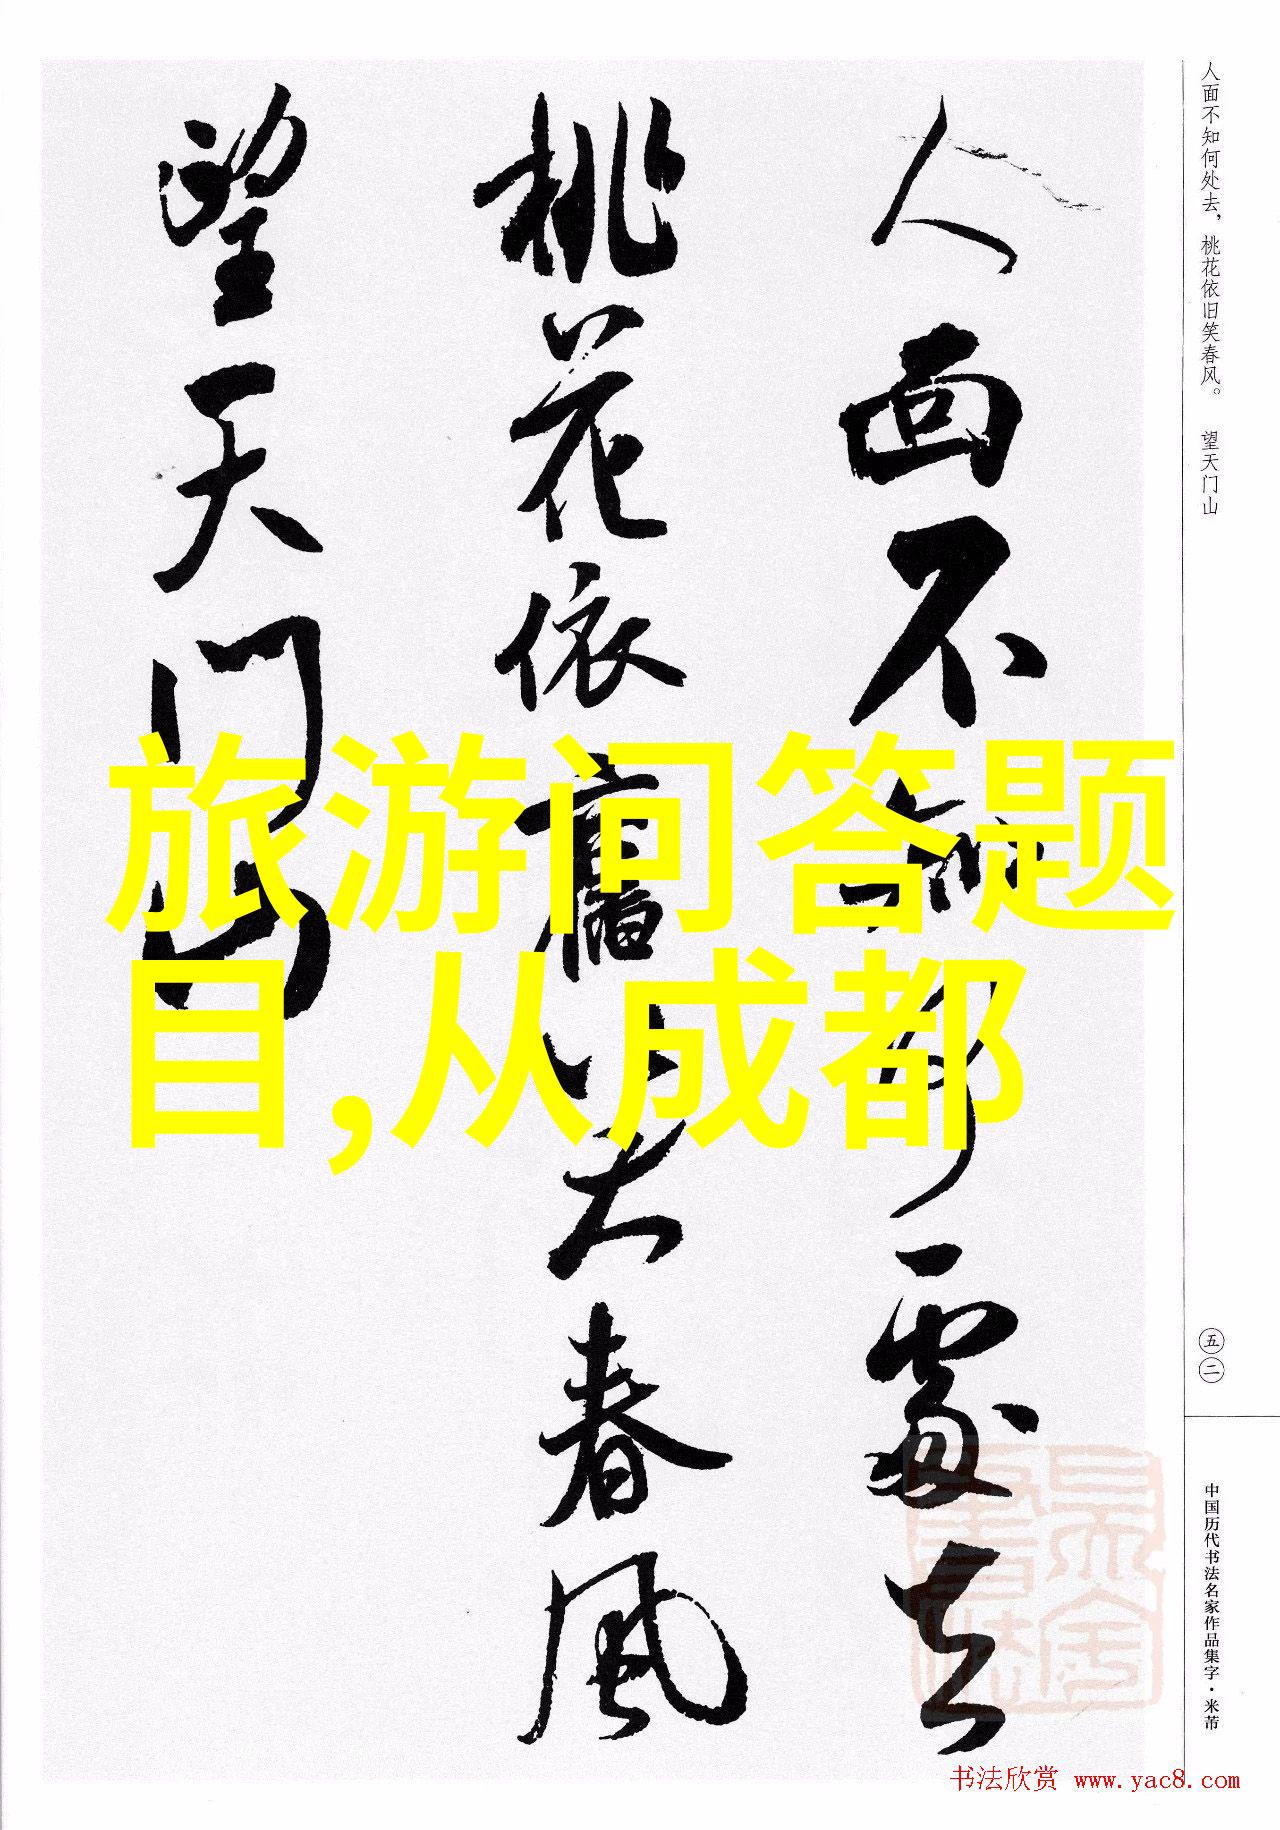 人面不知何處去
桃花依舊笑春風
望天门山
旅游问答题
目,从成都
人面不知何处去，桃花依旧笑春风。 望天门山
五二
中国历代书法名家作品集字·米芾
书法欣赏 www.yac8.com